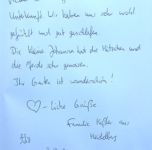 Unterkunft. Wir haben uns sehr wohl
gefühlt und gut geschlafen.
Die kleine Johanna hat die Kätzchen und
die Pferde sehr genossen.
Ihr Garten ist wunderschön!
♡-liche Grüße
Familie aus
Heidelberg